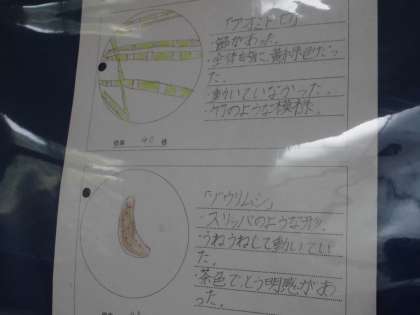 「アオミドロ」
・節があった。
・全体的に黄緑色だっ
た。
・動いていなかった。
・竹のような模様。
倍率 40 倍
「ゾウリムシ」
・スリッパのような形。
・うねうねして動いてい
た。
・茶色でとう明感があ
った。